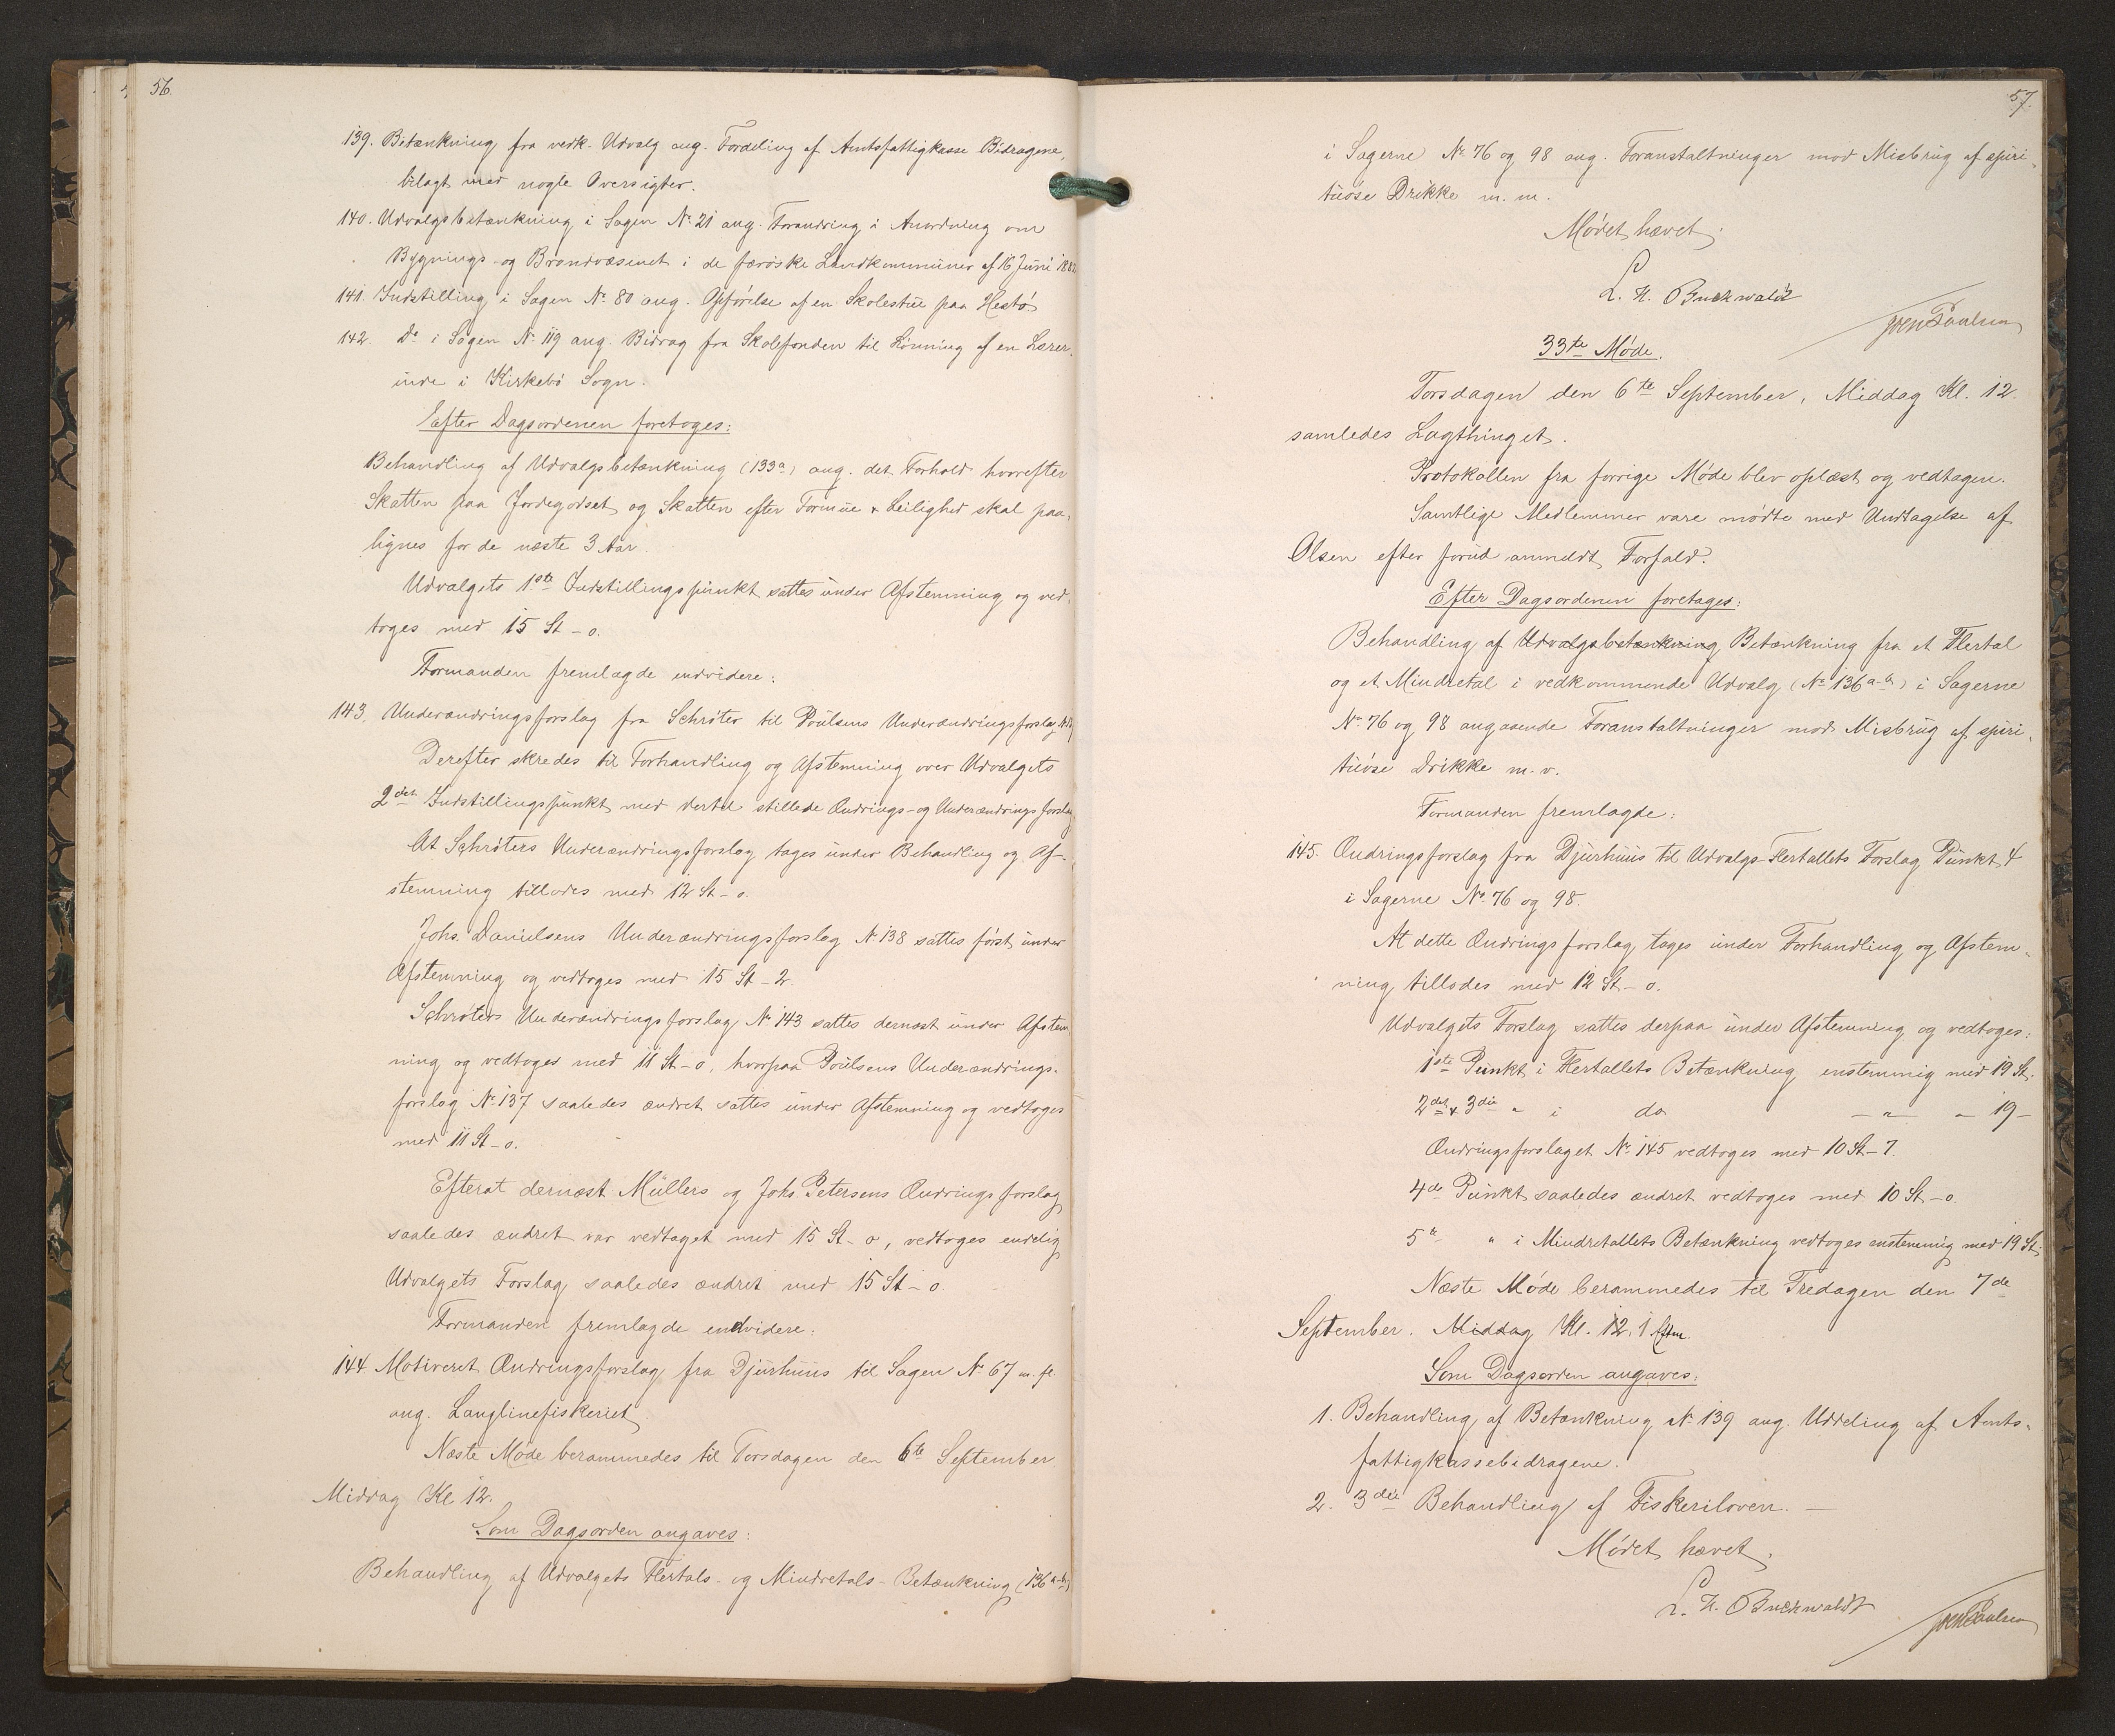 56.
139. Betænkning fra vedk. Udvalg ang. Fordeling af Amtsfattigkasse Bidragene,
bilagt med nogle Oversigter.
140. Udvalgsbetænkning i Sagen No 21 ang. Forandring i Anordning om
Bygnings- og Brandvæsenet i de færøske Landkommuner af 16 Juni 1882
141. Indstilling i Sagen No 80 ang. Opførelse af en Skolestue paa Hestø
142. Do i Sagen No 119 ang. Bidrag fra Skolefonden til Lønning af en Lærer-
inde i Kirkebø Sogn.
Efter Dagsordenen foretoges:
Behandling af Udvalgsbetænkning (133a) ang. det Forhold hvorefter
Skatten paa Jordegodset og Skatten efter Formue & Leilighed skal paa-
lignes for de næste 3 Aar.
Udvalgets 1ste Indstillingspunkt sattes under Afstemning og ved-
toges med 15 St - o.
Formanden fremlagde endvidere:
143. Underændringsforslag fra Schrøter til Poulsens Underændringsforslag
Derefter skredes til Forhandling og Afstemning over Udvalgets
2det Indstillingspunkt med dertil stillede Ændrings- og Underændringsforslag
At Schrøters Underændringsforslag tages under Behandling og Af-
stemning tillodes med 12 St - o.
Johs. Danielsens Underændringsforslag No 138 sattes først under
Afstemning og vedtoges med 15 St - 2.
Schrøters Underændringsforslag No 143 sattes dernæst under Afstem
ning og vedtoges med 11 St - o, hvorpaa Poulsens Underændrings-
forslag No 137 saaledes ændret sattes under Afstemning og vedtoges
med 11 St - o.
Efterat dernæst Müllers og Johs. Petersens Ændringsforslag
saaledes ændret var vedtaget med 15 St - o, vedtoges endelig
Udvalgets Forslag saaledes ændret med 15 St - o.
Formanden fremlagde endvidere:
144 Motiveret Ændringsforslag fra Djurhuus til Sagen No 67 m. fl.
ang. Langlinefiskeriet.
Næste Møde berammedes til Torsdagen den 6te September
Middag Kl 12.
Som Dagsorden angaves:
Behandling af Udvalgets Flertals- og Mindretals-Betænkning (136 a-b)
57.
i Sagerne No 76 og 98 ang. Foranstaltninger mod Misbrug af spiri-
tuøse Drikke m. m.
Mødet hævet.
L. H. Buchwaldt
Joen Poulsen
33te Møde.
Torsdagen den 6te September, Middag Kl. 12.
samledes Lagthinget.
Protokollen fra forrige Møde blev oplæst og vedtagen.
Samtlige Medlemmer vare mødte med Undtagelse af
Olsen efter forud anmeldt Forfald.
Efter Dagsordenen foretages:
Behandling af Udvalgsbetænkning Betænkning fra et Flertal
og et Mindretal i vedkommende Udvalg (No 136 a-b) i Sagerne
No 76 og 98 angaaende Foranstaltninger mod Misbrug af spiri-
tuøse Drikke m. v.
Formanden fremlagde:
145. Ændringsforslag fra Djurhuus til Udvalgs-Flertallets Forslag Punkt 4
i Sagerne No 76 og 98.
At dette Ændringsforslag tages under Forhandling og Afstem-
ning tillodes med 12 St - o.
Udvalgets Forslag sattes derpaa under Afstemning og vedtoges:
1ste Punkt i Flertallets Betænkning enstemmig med 19 St.
2det & 3die " i do - " - 19 -
Ændringsforslaget No 145 vedtoges med 10 St - 7.
4de Punkt saaledes ændret vedtoges med 10 St - o.
5te " i Mindretallets Betænkning vedtoges enstemmig med 19 St.
Næste Møde berammedes til Fredagen den 7de
September. Middag Kl. 12. 1 Eftm.
Som Dagsorden angaves:
1. Behandling af Betænkning No 139 ang. Uddeling af Amts-
fattigkassebidragene.
2. 3die Behandling af Fiskeriloven. -
Mødet hævet.
L. H. Buchwaldt
Joen Poulsen